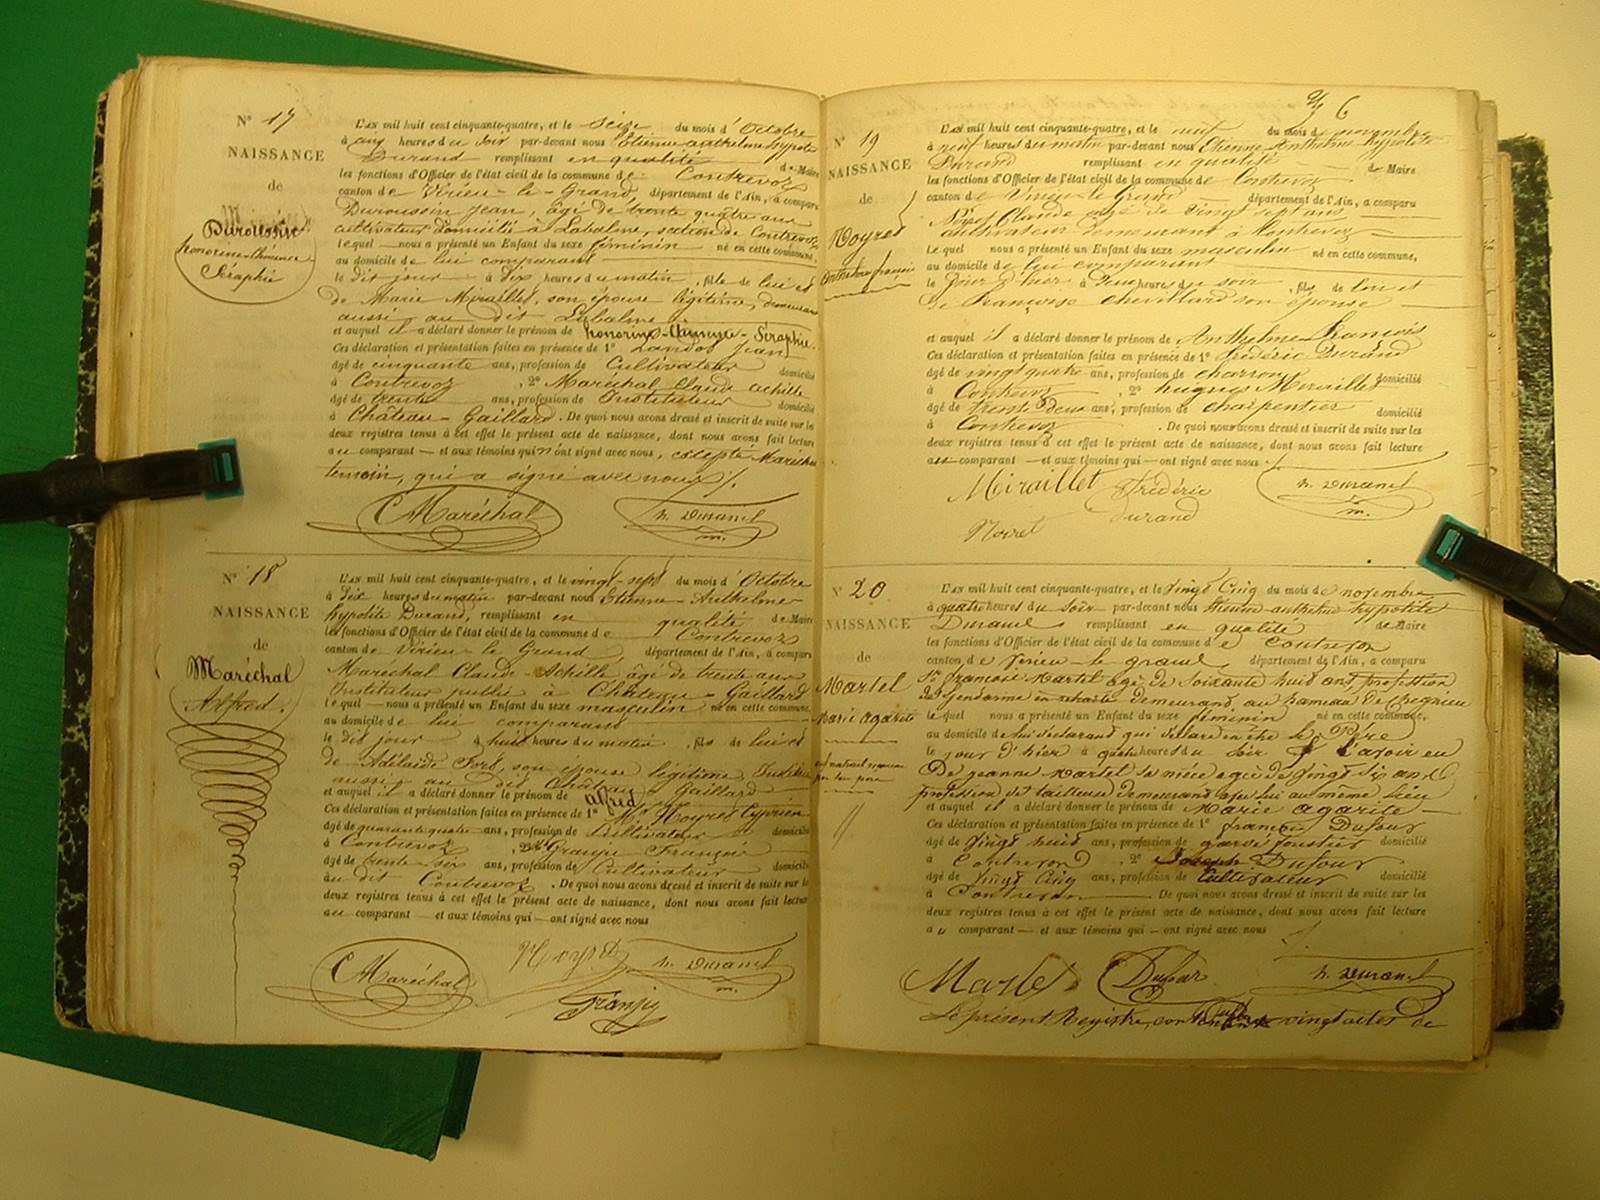 N° 17
NAISSANCE
de
Durousoin
honorine-Clémence
Séraphie
L'AN mil huit cent cinquante-quatre, et le seize du mois d'Octobre
à cinq heures du soir par-devant nous Etienne anthelme hypolite
Durand remplissant en qualité de Maire
les fonctions d'Officier de l'état civil de la commune de Contrevoz
canton de Virieu-le-Grand, département de l'Ain, a comparu
Durousoin Jean, âgé de trente quatre ans
cultivateur domicilié à Labalme, section de Contrevoz
lequel nous a présenté un Enfant du sexe féminin né en cette commune,
au domicile de lui comparant
le dit jour à dix heures du matin, fils de lui et
de Marie Miraillet, son épouse légitime, demeurant
aussi au dit Labalme
et auquel il a déclaré donner le prénom de honorine-Clémence-Séraphie.
Ces déclaration et présentation faites en présence de 1° Landos Jean
âgé de cinquante ans, profession de Cultivateur domicilié
à Contrevoz, 2° Maréchal Claude achille
âgé de trente ans, profession de Instituteur domicilié
à Château-Gaillard. De quoi nous avons dressé et inscrit de suite sur les
deux registres tenus à cet effet le présent acte de naissance, dont nous avons fait lecture
au comparant et aux témoins qui n'ont signé avec nous, excepté Maréchal
temoin, qui a signé avec nous
C Maréchal h. Durand
m.
N° 18
NAISSANCE
de
Maréchal
Alfred.
L'AN mil huit cent cinquante-quatre, et le vingt-sept du mois d'Octobre
à dix heures du matin par-devant nous Etienne-Anthelme
hypolite Durand, remplissant en qualité de Maire
les fonctions d'Officier de l'état civil de la commune de Contrevoz
canton de Virieu-le Grand, département de l'Ain, a comparu
Maréchal Claude-Achille âgé de trente ans
Instituteur public à Château-Gaillard
lequel nous a présenté un Enfant du sexe masculin né en cette commune,
au domicile de lui comparant
le dit jour à huit heures du matin, fils de lui et
de Adélaïde son épouse légitime,
aussi au dit Château Gaillard
et auquel il a déclaré donner le prénom de alfred
Ces déclaration et présentation faites en présence de 1° Mr Noyret Cyprien
âgé de quarante quatre ans, profession de Cultivateur domicilié
à Contrevoz, 2° Mr Granjie François
âgé de trente-six ans, profession de Cultivateur domicilié
au dit Contrevoz. De quoi nous avons dressé et inscrit de suite sur les
deux registres tenus à cet effet le présent acte de naissance, dont nous avons fait lecture
au comparant et aux témoins qui ont signé avec nous
C Maréchal Noyret h. Durand
m.
Granjie
6
N° 19
NAISSANCE
de
Noyret
Anthelme françois
L'AN mil huit cent cinquante-quatre, et le neuf du mois de novembre
à neuf heures du matin par-devant nous Etienne Anthelme hypolite
Durand remplissant en qualité de Maire
les fonctions d'Officier de l'état civil de la commune de Contrevoz
canton de Virieu le Grand département de l'Ain, a comparu
Noyret Claude agé de vingt sept ans
cultivateur demeurant à Contrevoz
lequel nous a présenté un Enfant du sexe masculin né en cette commune,
au domicile de lui comparant
le jour d'hier à deux heures du soir, fils de lui et
de Françoise Chevillard son épouse
et auquel il a déclaré donner le prénom de Anthelme François
Ces déclaration et présentation faites en présence de 1° Frédéric Durand
âgé de vingt quatre ans, profession de charron domicilié
à Contrevoz, 2° hugues Miraillet
âgé de trente deux ans, profession de charpentier domicilié
à Contrevoz. De quoi nous avons dressé et inscrit de suite sur les
deux registres tenus à cet effet le présent acte de naissance, dont nous avons fait lecture
au comparant et aux témoins qui ont signé avec nous
Miraillet Frédéric h. Durand
Durand m.
Noiret
N° 20
NAISSANCE
de
Martel
Marie agarite
L'AN mil huit cent cinquante-quatre, et le vingt Cinq du mois de novembre
à quatre heures du soir par-devant nous Etienne anthelme hypolite
Durand remplissant en qualité de Maire
les fonctions d'Officier de l'état civil de la commune de Contrevoz
canton de Virieu-le grand, département de l'Ain, a comparu
Sr françois Martel agé de soixante huit ans, profession
de Gendarme en retraite demeurant au hameau de
lequel nous a présenté un Enfant du sexe féminin né en cette commune,
au domicile de lui déclarant qui déclare en être le Père
le jour d'hier à quatre heures du soir l'avoir eu
De jeanne Martel sa nièce agée de vingt six ans
profession de tailleuse demeurant avec lui au même lieu
et auquel il a déclaré donner le prénom de Marie agarite
Ces déclaration et présentation faites en présence de 1° françois Dufour
âgé de vingt huit ans, profession de garde forestier domicilié
à Contrevoz, 2° Joseph Dufour
âgé de vingt Cinq ans, profession de Cultivateur domicilié
à Contrevoz De quoi nous avons dressé et inscrit de suite sur les
deux registres tenus à cet effet le présent acte de naissance, dont nous avons fait lecture
au comparant et aux témoins qui ont signé avec nous
Martel Dufour h. Durand
Le présent Registre, contenant vingt actes de